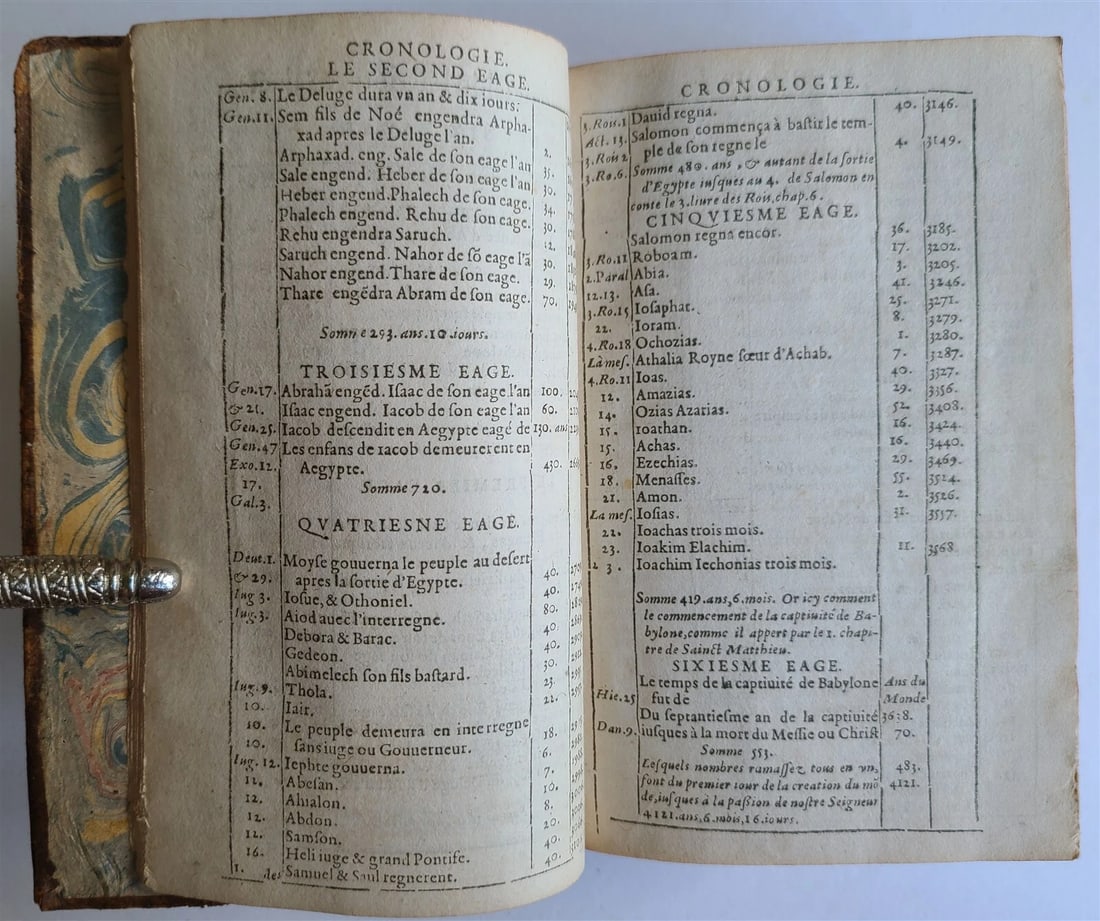 CRONOLOGIE.
LE SECOND EAGE.
Gen. 8. Le Deluge dura vn an & dix iours;
Gen. 11. Sem fils de Noé engendra Arpha-
xad apres le Deluge l'an. 2.
Arphaxad. eng. Sale de son eage l'an 35.
Sale engend. Heber de son eage l'an 30.
Heber engend. Phalech de son eage. 34.
Phalech engend. Rehu de son eage. 30.
Rehu engendra Saruch.
Saruch engend. Nahor de sõ eage l'ã 30.
Nahor engend. Thare de son eage. 29.
Thare engẽdra Abram de son eage. 70.
Somme 293. ans. 10 iours.
TROISIESME EAGE.
Gen. 17. Abrahã engẽd. Isaac de son eage l'an 100.
& 21. Isaac engend. Iacob de son eage l'an 60.
Gen. 25. Iacob descendit en Aegypte eagé de 130. ans
Gen. 47 Les enfans de iacob demeurerent en
Exo. 12. Aegypte. 430.
17. Somme 720.
Gal. 3.
QVATRIESNE EAGE.
Deut. 1. Moyse gouuerna le peuple au desert
& 29. apres la sortie d'Egypte. 40.
Iug 3. Iosue, & Othoniel. 40.
Iug. 3. Aiod auec l'interregne. 80.
Debora & Barac. 40.
Gedeon. 40.
Abimelech son fils bastard. 30.
Iug. 9. Thola. 23.
10. Iair. 22.
10. Le peuple demeura en interregne
10. sans iuge ou Gouuerneur. 18.
Iug. 12. Iephte gouuerna. 6.
11. Abesan. 7.
12. Ahialon. 10.
12. Abdon. 8.
12. Samson. 20.
16. Heli iuge & grand Pontife. 40.
1. des Samuel & Saul regnerent. 40.
CRONOLOGIE.
3. Rois. 1 Dauid regna. 40. 3146.
Act. 13. Salomon commença à bastir le tem-
3. Rois 2 ple de son regne le 4. 3149.
3. Ro. 6. Somme 480. ans, & autant de la sortie
d'Egypte iusques au 4. de Salomon en
conte le 3. liure des Rois, chap. 6.
CINQVIESME EAGE.
Salomon regna encor. 36. 3185.
3. Ro. 11 Roboam. 17. 3202.
2. Paral Abia. 3. 3205.
12. 13. Asa. 41. 3246.
3. Ro. 15 Iosaphat. 25. 3271.
22. Ioram. 8. 3279.
4. Ro. 18 Ochozias. 1. 3280.
Là mes. Athalia Royne sœur d'Achab. 7. 3287.
4. Ro. 11 Ioas. 40. 3327.
12. Amazias. 29. 3356.
14. Ozias Azarias. 52. 3408.
15. Ioathan. 16. 3424.
15. Achas. 16. 3440.
16. Ezechias. 29. 3469.
18. Menasses. 55. 3524.
21. Amon. 2. 3526.
La mes. Iosias. 31. 3557.
22. Ioachas trois mois.
23. Ioakim Elachim. 11. 3568
2 3. Ioachim Iechonias trois mois.
Somme 419. ans, 6. mois. Or icy comment
le commencement de la captiuité de Ba-
bylone, comme il appert par le 1. chapi-
tre de Sainct Matthieu.
SIXIESME EAGE.
Le temps de la captiuité de Babylone Ans du
Hie. 25 fut de Monde
Du septantiesme an de la captiuité 36 8.
Dan. 9. iusques à la mort du Messie ou Christ 70.
Somme 553.
Lesquels nombres ramassez tous en vn, 483.
font du premier iour de la creation du mõ 4121.
de, iusques à la passion de nostre Seigneur
4121. ans, 6. mois, 16. iours.